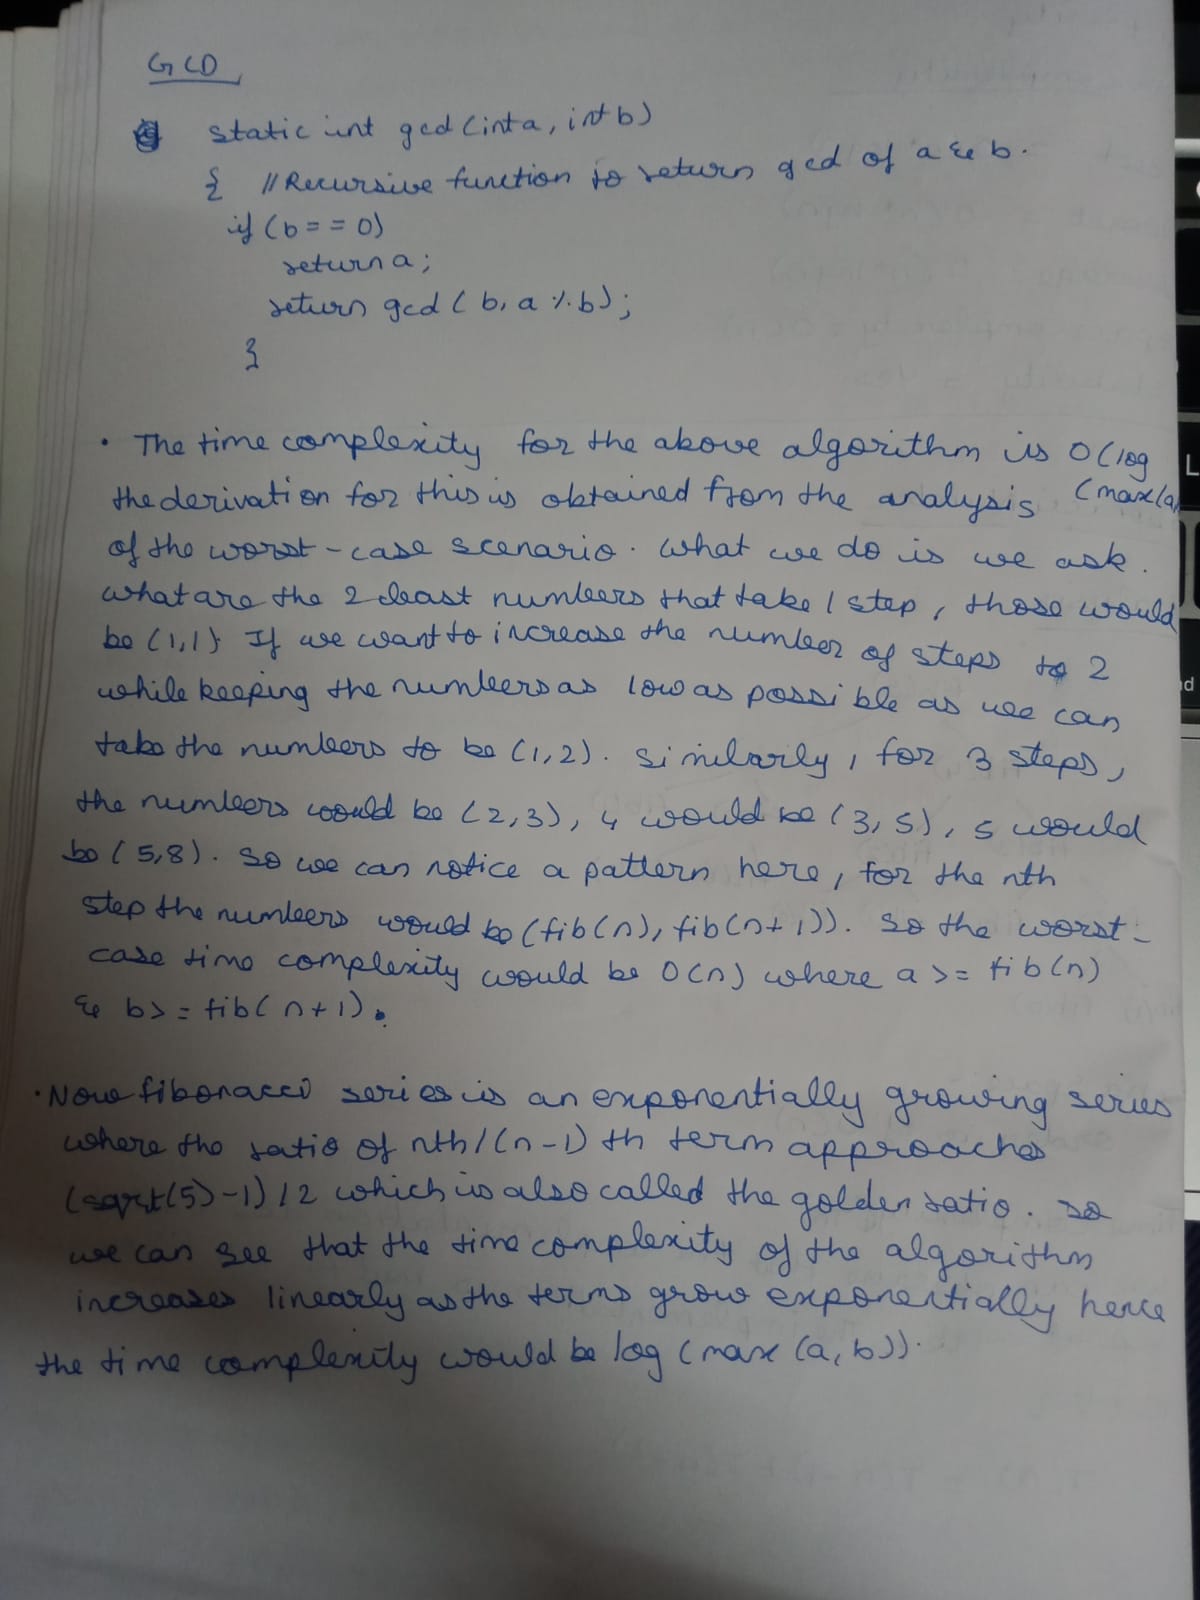 GCD
static int gcd (int a, int b)
{ // Recursive function to return gcd of a & b.
if (b == 0)
return a;
return gcd ( b, a % b);
}
• The time complexity for the above algorithm is O(log
the derivation for this is obtained from the analysis (max(a,
of the worst-case scenario. What we do is we ask.
what are the 2 least numbers that take 1 step, those would
be (1,1). If we want to increase the number of steps to 2
while keeping the numbers as low as possible as we can
take the numbers to be (1,2). Similarly, for 3 steps,
the numbers would be (2,3), 4 would be (3,5), 5 would
be (5,8). So we can notice a pattern here, for the nth
step the numbers would be (fib(n), fib(n+1)). So the worst-
case time complexity would be O(n) where a >= fib(n)
& b >= fib(n+1).
• Now fibonacci series is an exponentially growing series
where the ratio of nth/(n-1)th term approaches
(sqrt(5)-1)/2 which is also called the golden ratio. So
we can see that the time complexity of the algorithm
increases linearly as the terms grow exponentially hence
the time complexity would be log (max (a, b)).
L
nd